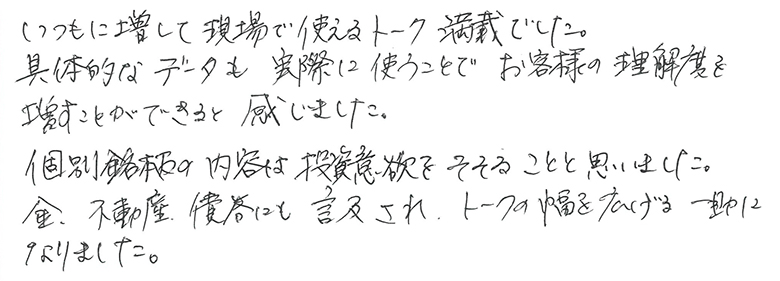 いつもに増して現場で使えるトーク満載でした。
具体的なデータも実際に使うことでお客様の理解度を
増すことができると感じました。
個別銘柄の内容は投資意欲をそそることと思いました。
金、不動産、債券にも言及され、トークの幅を広げる一助に
なりました。